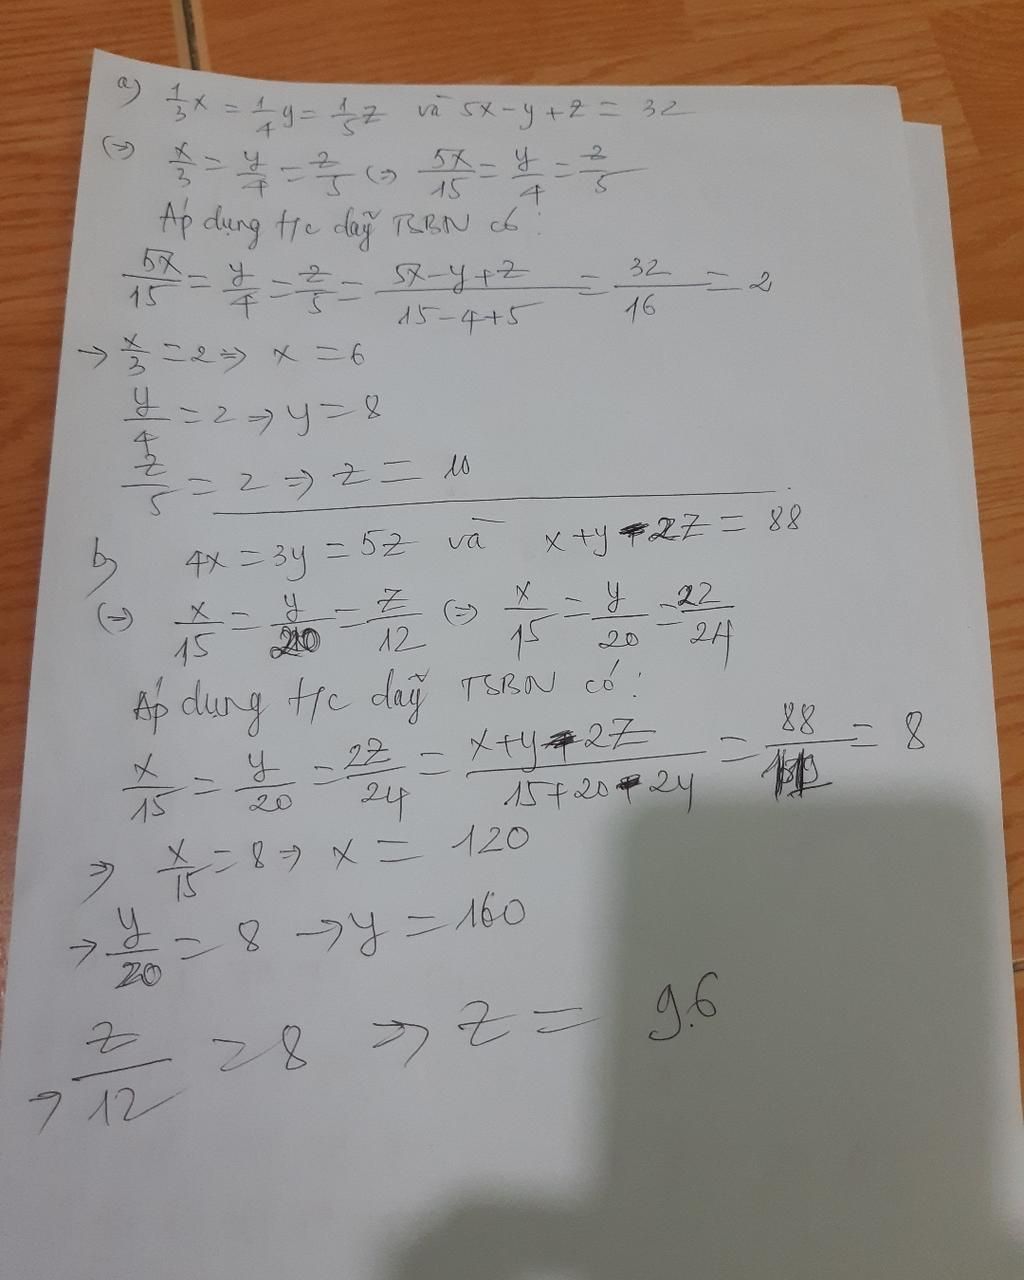 a) 1/3 x = 1/4 y = 1/5 z và 5x - y + z = 32
(=) x/3 = y/4 = z/5 (=) 5x/15 = y/4 = z/5
Áp dụng t/c dãy TSBN có:
5x/15 = y/4 = z/5 = (5x - y + z)/(15 - 4 + 5) = 32/16 = 2
→ x/3 = 2 => x = 6
y/4 = 2 → y = 8
z/5 = 2 => z = 10
b) 4x = 3y = 5z và x + y - 2z = 88
(=) x/15 = y/20 = z/12 (=) x/15 = y/20 = 2z/24
Áp dụng t/c dãy TSBN có:
x/15 = y/20 = 2z/24 = (x + y - 2z)/(15 + 20 - 24) = 88/11 = 8
=> x/15 = 8 → x = 120
→ y/20 = 8 → y = 160
→ z/12 = 8 => z = 96